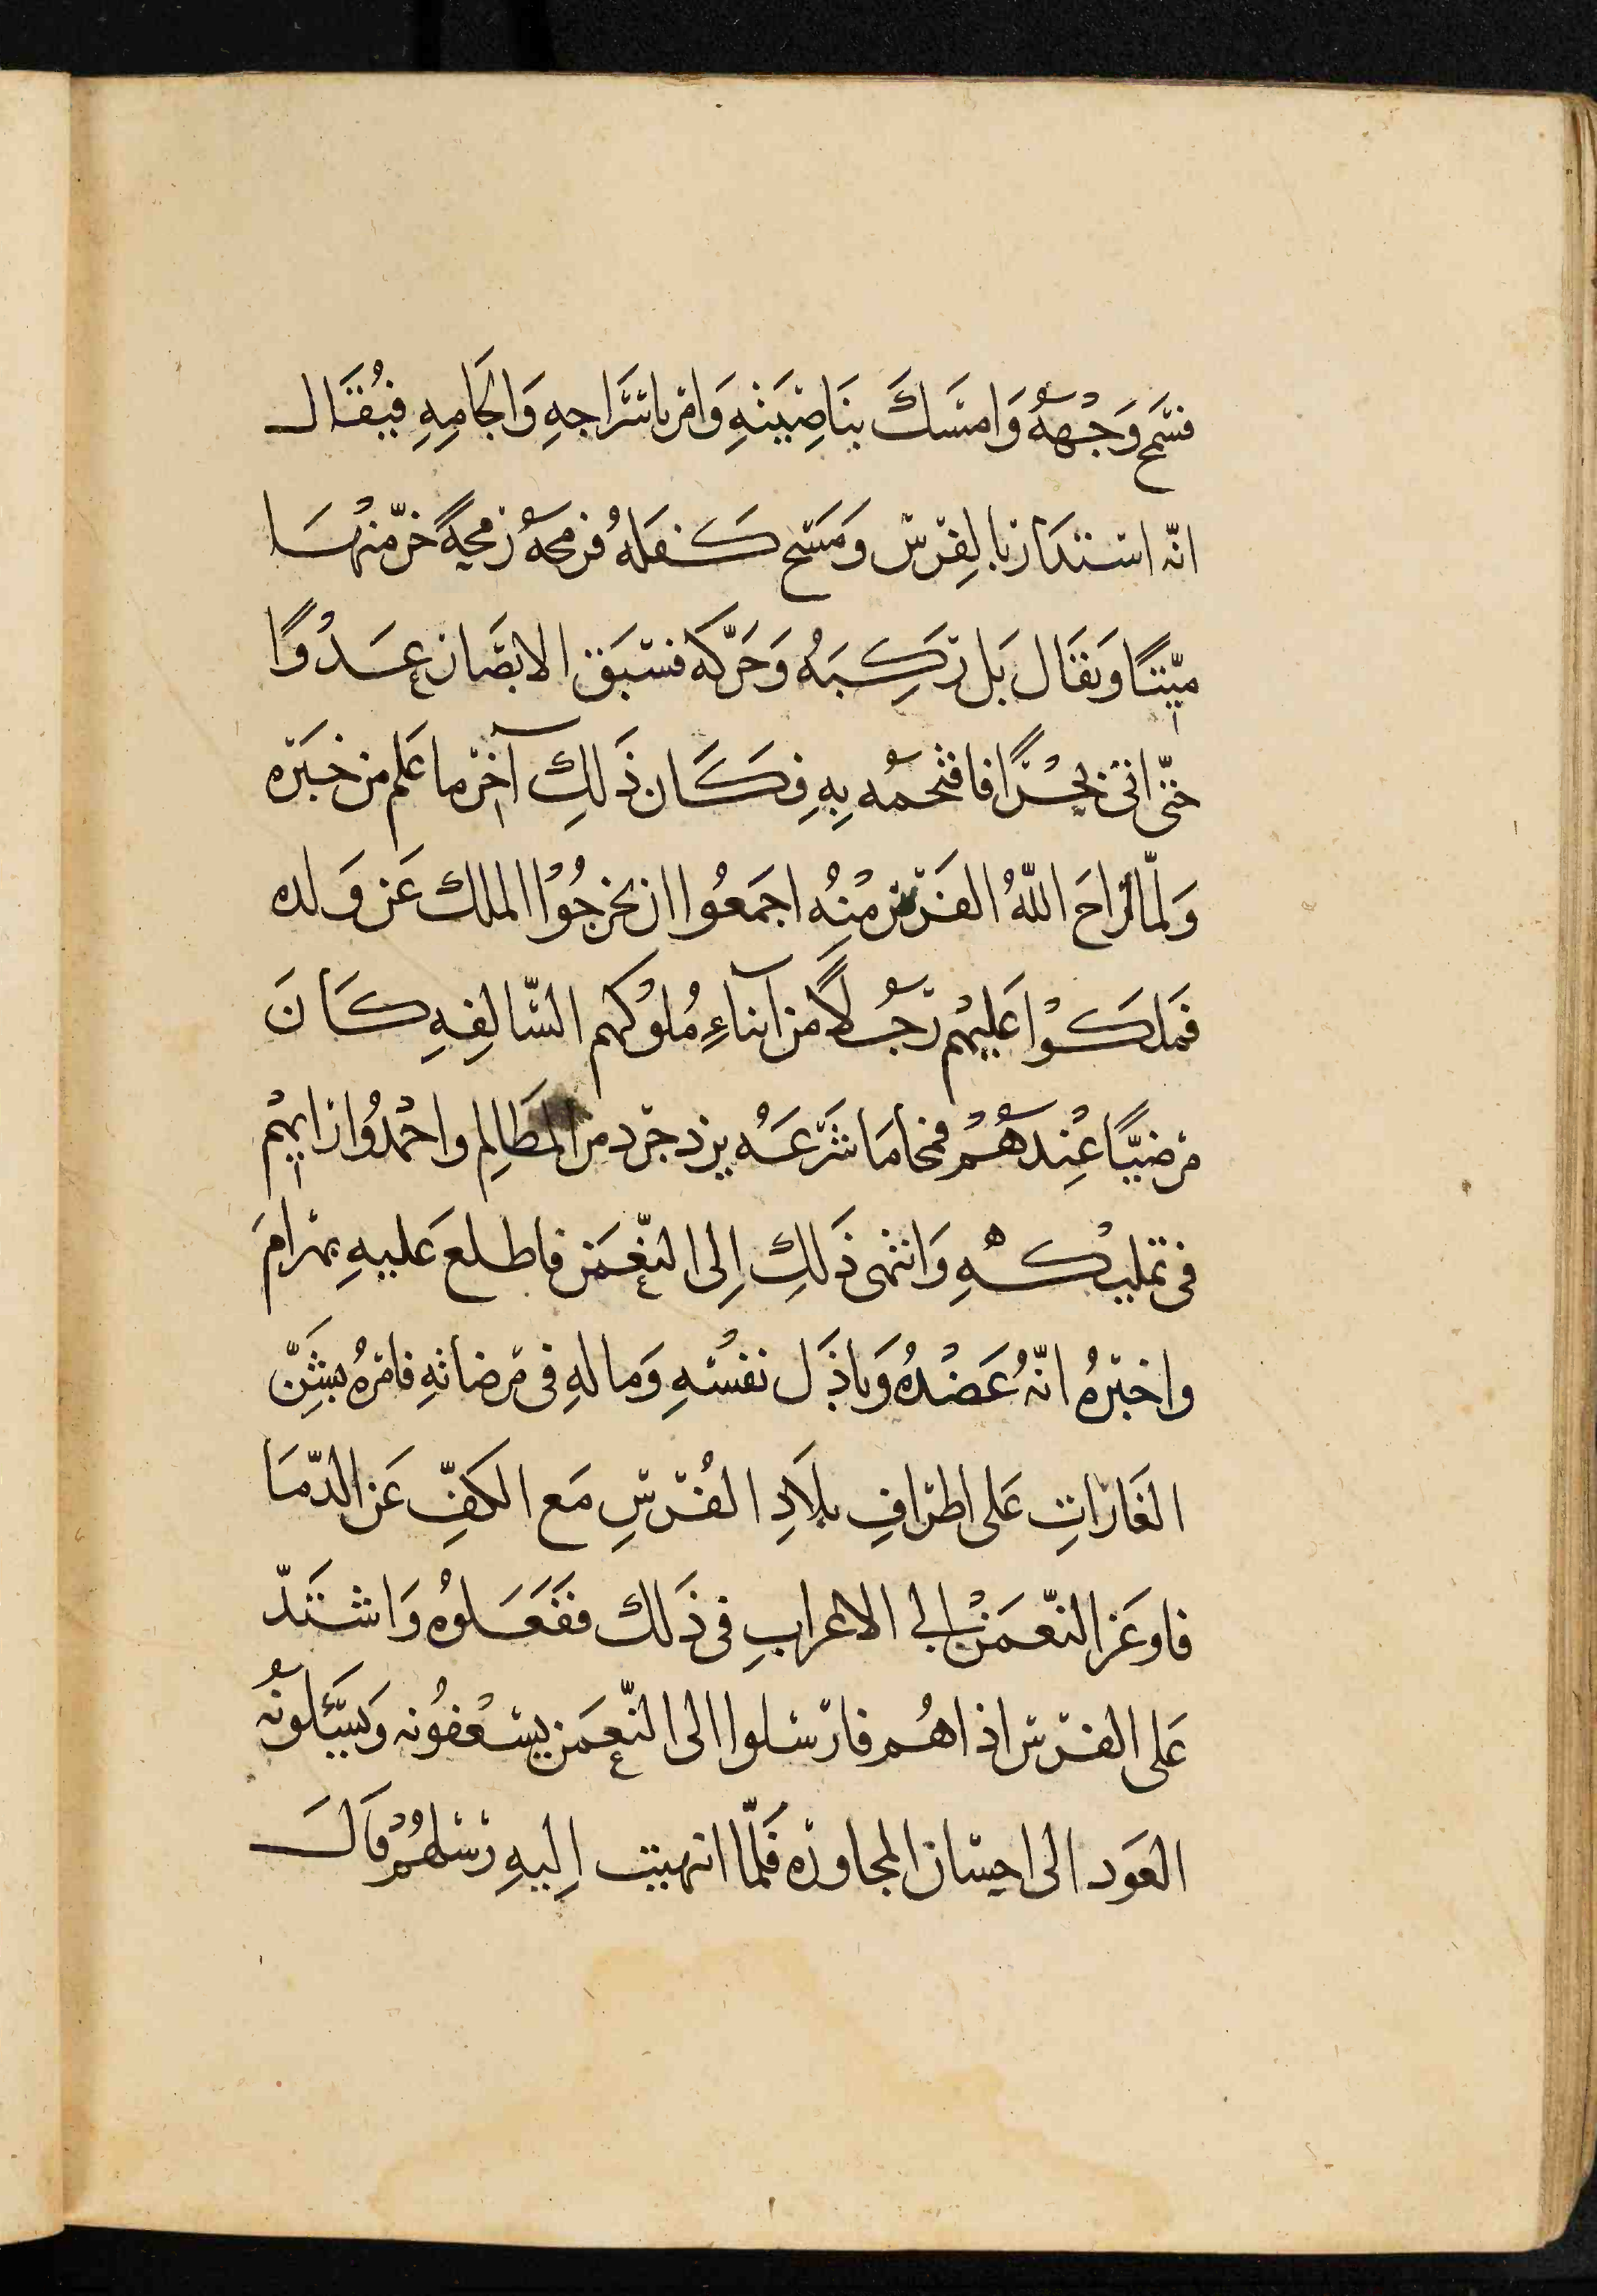 فمسح وَجْههُ وَامسَك بنَاصِيَتهِ وَامر باسْرَاجهِ وَالجَامِهِ فيُقَال
انّه استدَار بالفرس وَمَسَح كفله فرمحهُ رَمحةً خرّ منهَا
ميّتًا وَيقَال بَل رَكِبَهُ وَحَرّكه فسبَق الابصَار عَدْوًا
حتّى اتى بحْرًا فاقتحمه بِهِ فكَان ذَلِكَ آخر ما عَلم من خبَره
وَلمّا اراحَ اللهُ الفرس مِنْهُ اجمَعُوا ان يخرجُوْا الملك عَن وَلده
فملكوْا عَليهْم رَجُلاً من ابناءِ مُلوْكهم السّالفهِ كَانَ
مرضيّا عِنْدهُمْ فمحا مَا شرَعَهُ يزدجرد من المَظَالِم واحْمدُوا رَايهُم
فى تمليْكهِ وَانتهى ذَلِكَ اِلى النّعمَن فاطلع عَليهِ بهرامَ
واخبرهُ انّهُ عَضْدُه وَباذَل نفسْهِ وَمالهِ فى مَرضاتهِ فامَرهُ بشَنّ
الغَارَاتِ عَلى اطرَافِ بلَادِ الفُرْسِ مَع الكَفِّ عَن الدّمَا
فاوعَز النّعمَن الى الاعرابِ فى ذَلك ففَعَلوُه وَاشتَدّ
عَلى الفرس اذاهُم فارسَلوا الى النّعمَن يستعْفُونه وَيسَئلونهُ
العَود الى احسَان المجاورَه فَلمّا انهيت اِليهِ رسْلهُمْ قاَلَ